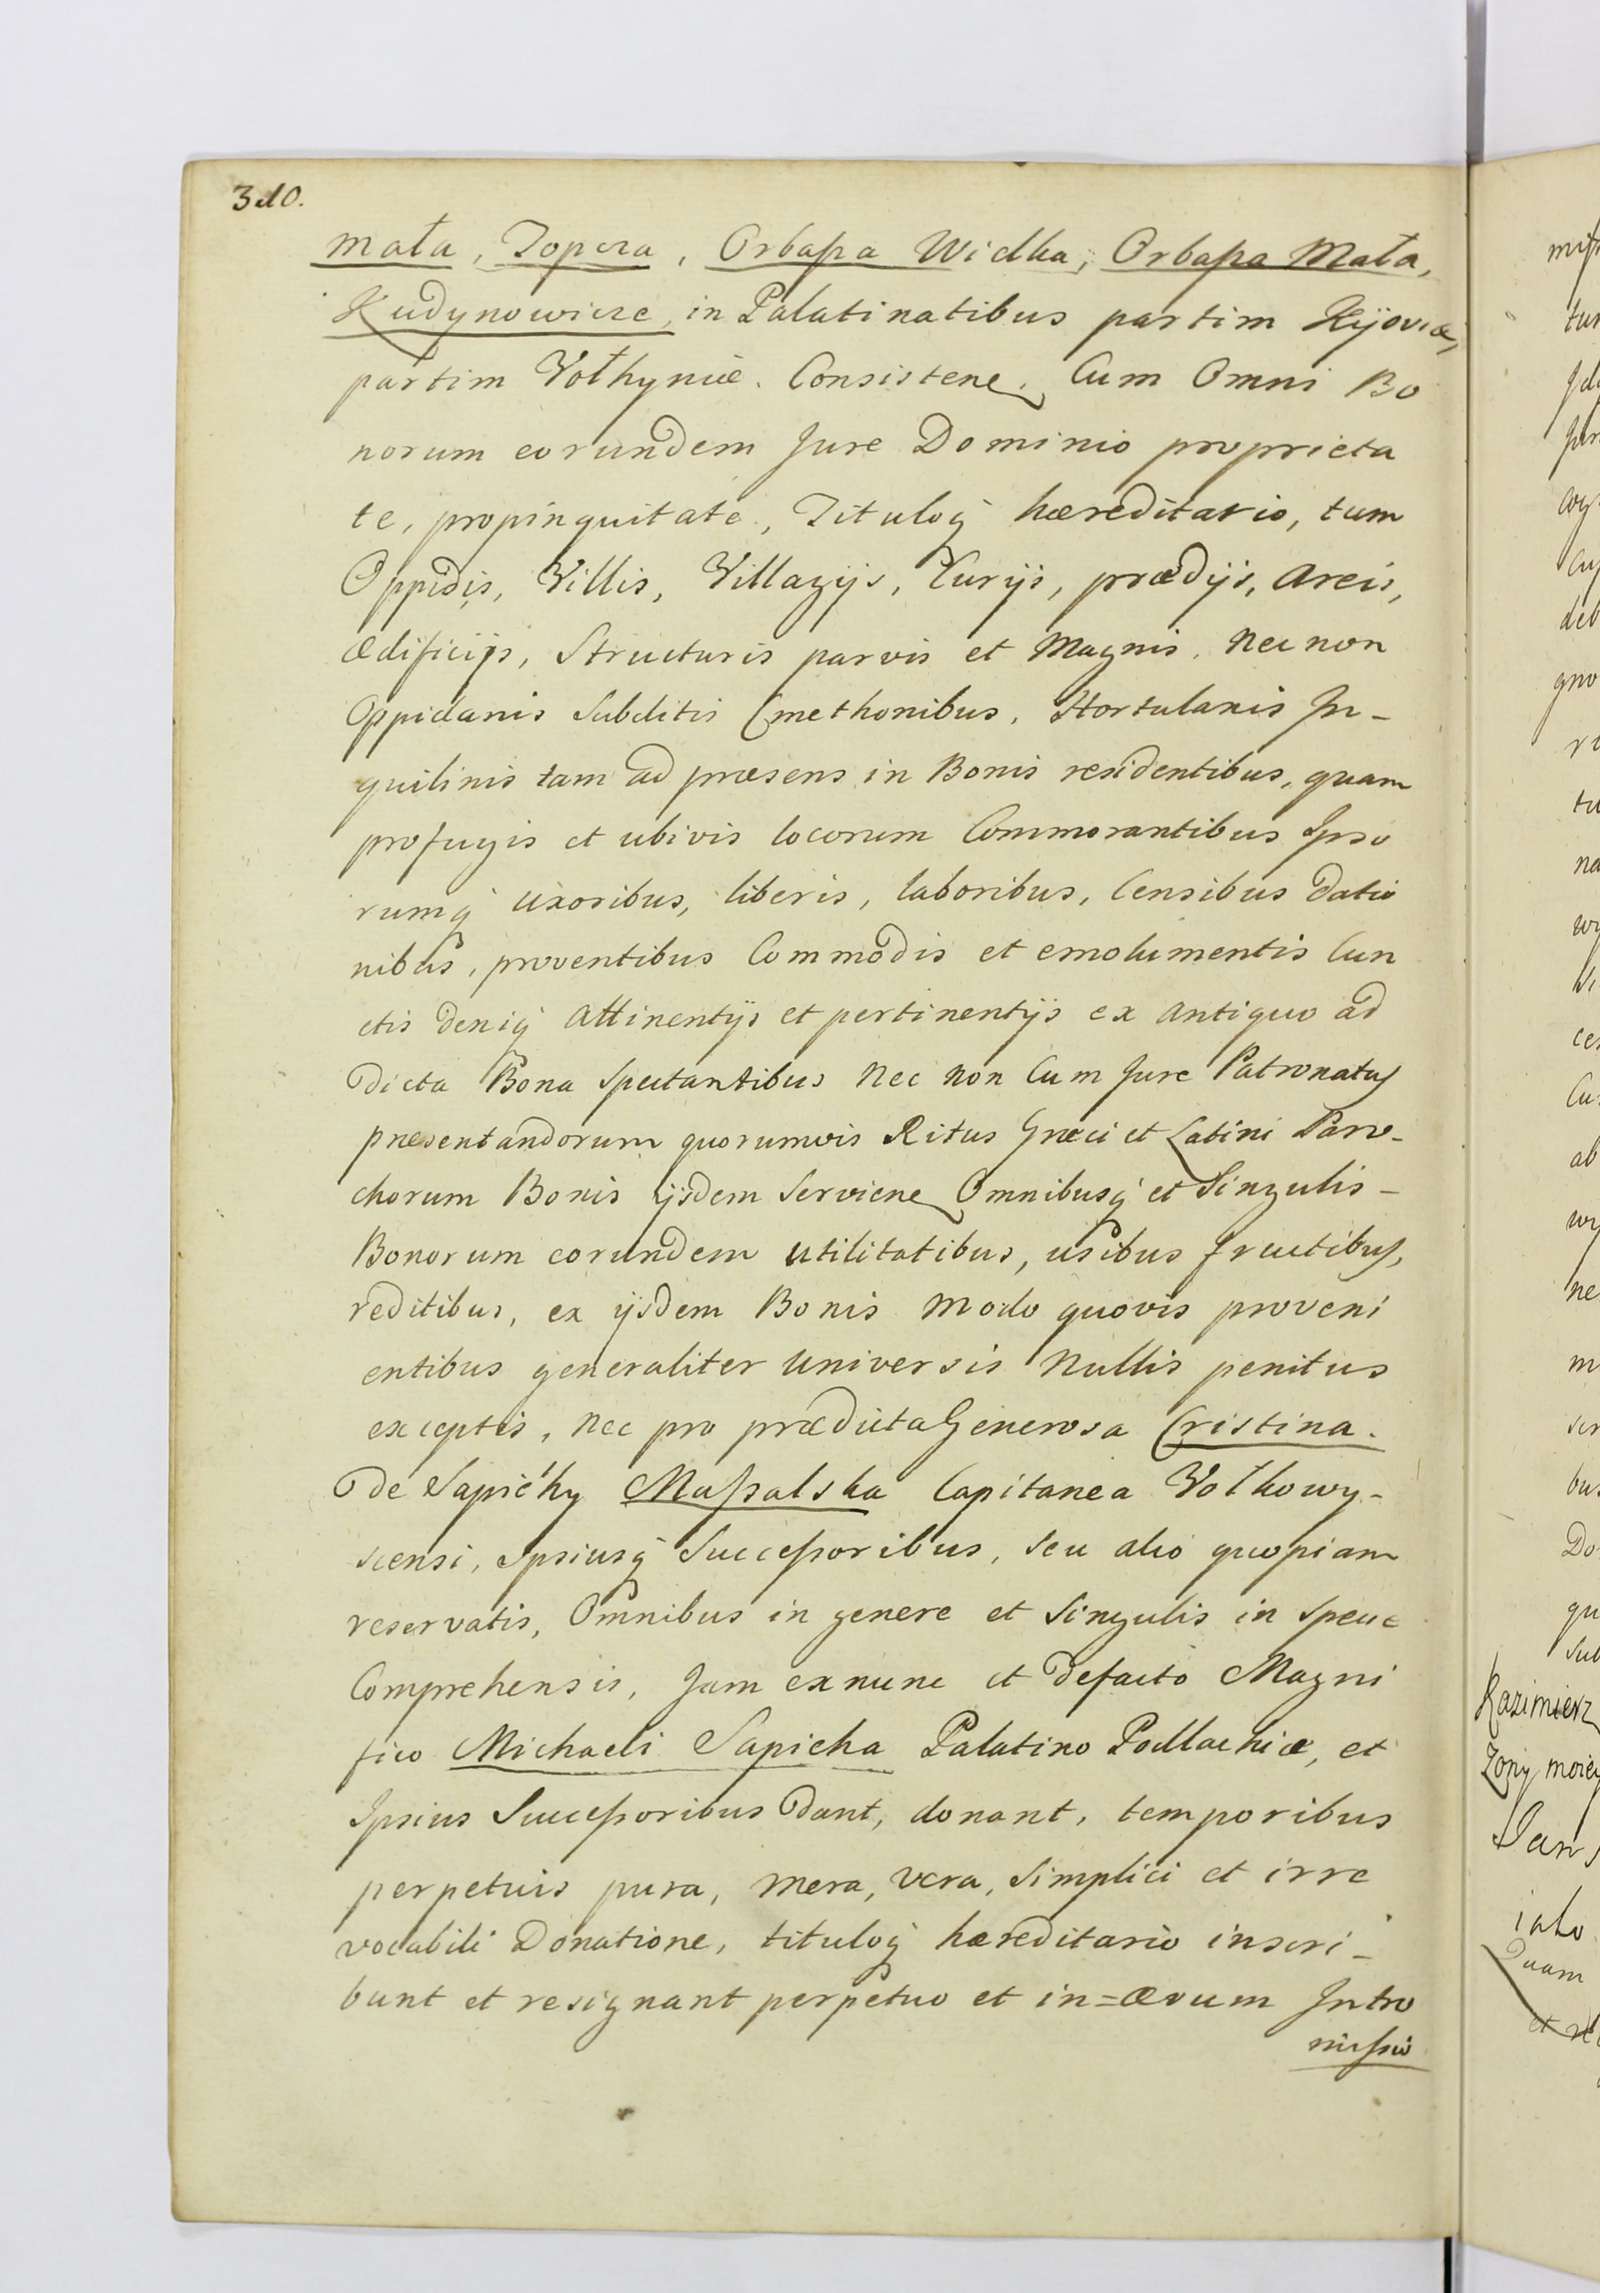 310.
mała, Topora, Orbaſsa Wielka, Orbaſsa Mała,
Kudynowicze, in Palatinatibus partim Kijoviæ,
partim Vołhyniæ. Consistene. Cum Omni Bo
norum eorundem Jure Dominio proprieta
te, propinquitate, Tituloq́ hæreditario, tum
Oppidis, Villis, Villagijs, Curijs, prædijs, areis,
ædificijs, Structuris parvis et Magnis. Nec non
Oppidanis Subditis Cmethonibus, Hortulanis In-
quilinis tam ad præsens in Bonis residentibus, quam
profugis et ubivis locorum Commorantibus Ipso
rumq́ uxoribus, liberis, laboribus, Censibus Datio
nibus, proventibus Commodis et emolumentis Cun
ctis deniq́ attinentijs et pertinentijs ex antiquo ad
dicta Bona Spectantibus Nec non Cum Jure Patronatus
præsentandorum quorumvis Ritus Græci et Latini Paro-
chorum Bonis ijsdem Serviene Omnibusq́ et Singulis-
Bonorum eorundem utilitatibus, usibus fructibus,
reditibus, ex ijsdem Bonis Modo quovis proveni
entibus generaliter universis Nullis penitus
exceptis, Nec pro prædicta Generosa Cristina.
De Sapiéhy Maſsalska Capitanea Wołkowy-
scensi, Ipsiusq́ Succeſsoribus, seu alio quopiam
reservatis, Omnibus in genere et Singulis in Specie
Comprehensis, Jam exnunc et defacto Magni
fico Michaeli Sapieha Palatino Podlachiæ, et
Ipsius Succeſsoribus Dant, donant, temporibus
perpetuis pura, mera, vera, Simplici et irre
vocabili Donatione, tituloq́ hæreditario inscri-
bunt et resignant perpetuo et in=ævum Intro
miſsio
Kazimierz
Zony moiey
Jan
iako
Quam